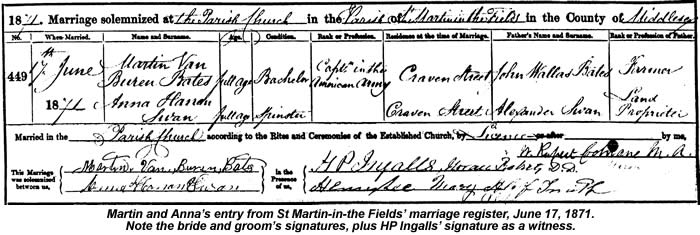 1871. Marriage solemnized at the Parish Church in the Parish of St Martin in the Fields in the County of Middlesex
No. When Married. Name and Surname. Age. Condition. Rank or Profession. Residence at the time of Marriage. Father's Name and Surname. Rank or Profession of Father.
449 17th June 1871 Martin Van Buren Bates full age Bachelor Captn in the American Army Craven Street John Wallas Bates Farmer
Anna Hanon Swan full age Spinster Craven Street Alexander Swan Land Proprietor
Married in the Parish Church according to the Rites and Ceremonies of the Established Church, by Licence or after by me,
W. Rupert Cochrane M.A.
This Marriage was solemnized between us, Martin Van Buren Bates in the Presence of us, H P Ingalls
Anna Hanon Swan Henry Lee
Martin and Anna's entry from St Martin-in-the Fields' marriage register, June 17, 1871.
Note the bride and groom's signatures, plus HP Ingalls' signature as a witness.